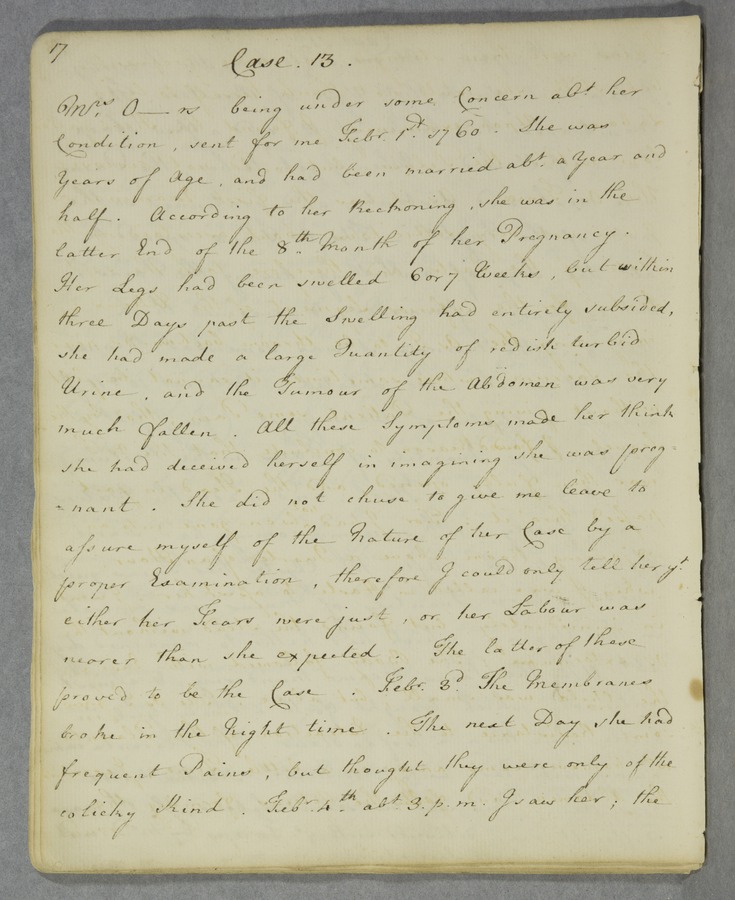 17
Case. 13.
Mrs. O—ns being under some Concern abt. her
Condition, sent for me Febr. 1st. 1760. She was
Years of Age, and had been married abt. a Year and
half. According to her Reckoning, she was in the
latter End of the 8th. Month of her Pregnancy.
Her Legs had been swelled 6 or 7 Weeks, but within
three Days past the Swelling had entirely subsided,
she had made a large Quantity of redish turbid
Urine, and the Tumour of the Abdomen was very
much fallen. All these Symptoms made her think
she had deceived herself in imagining she was preg-
=nant. She did not chuse to give me leave to
assure myself of the Nature of her Case by a
proper Examination, therefore I could only tell her yt.
either her Fears were just, or her Labour was
nearer than she expected. The latter of these
proved to be the Case. Febr. 3d. The Membranes
broke in the Night time. The next Day she had
frequent Pains, but thought they were only of the
colicky Kind. Febr. 4th. abt. 3. p.m. I saw her; the